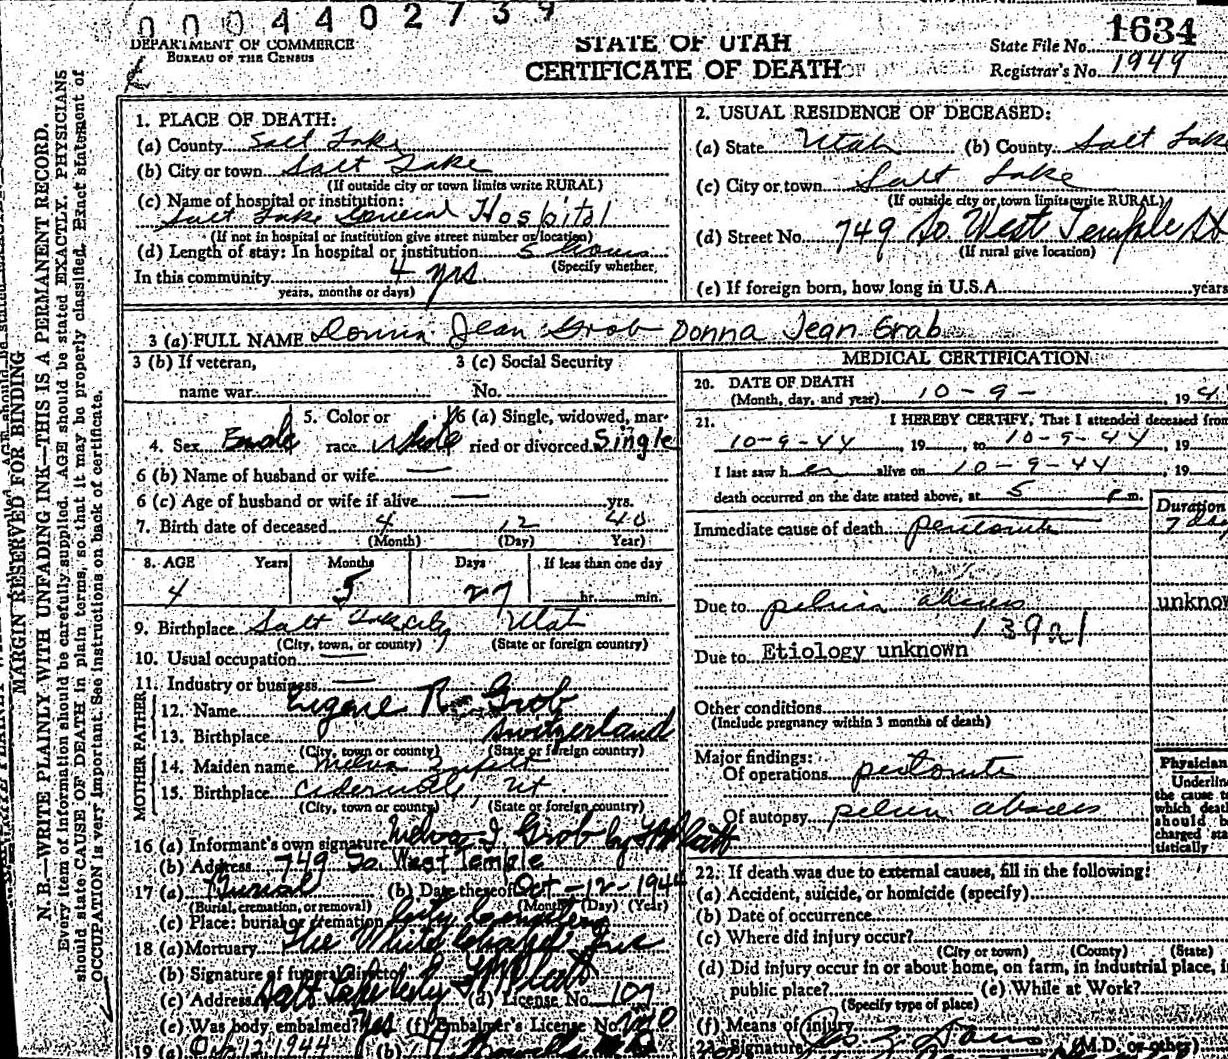 0004402739
DEPARTMENT OF COMMERCE
BUREAU OF THE CENSUS
STATE OF UTAH
CERTIFICATE OF DEATH
State File No. 1634
Registrar's No. 1949
MARGIN RESERVED FOR BINDING
N. B.—WRITE PLAINLY WITH UNFADING INK—THIS IS A PERMANENT RECORD.
Every item of information should be carefully supplied. AGE should be stated EXACTLY. PHYSICIANS
should state CAUSE OF DEATH in plain terms, so that it may be properly classified. Exact statement of
OCCUPATION is very important. See instructions on back of certificate.
1. PLACE OF DEATH:
(a) County Salt Lake
(b) City or town Salt Lake
(If outside city or town limits write RURAL)
(c) Name of hospital or institution:
Salt Lake General Hospital
(If not in hospital or institution give street number or location)
(d) Length of stay: In hospital or institution 5 hours
(Specify whether,
In this community 4 yrs
years, months or days)
2. USUAL RESIDENCE OF DECEASED:
(a) State Utah (b) County Salt Lake
(c) City or town Salt Lake
(If outside city or town limits write RURAL)
(d) Street No. 749 So. West Temple St
(If rural give location)
(e) If foreign born, how long in U.S.A. years
3 (a) FULL NAME Donna Jean Grob Donna Jean Grab
3 (b) If veteran,
name war
3 (c) Social Security
No.
4. Sex Female
5. Color or
race White
6 (a) Single, widowed, mar-
ried or divorced Single
6 (b) Name of husband or wife —
6 (c) Age of husband or wife if alive — yrs.
7. Birth date of deceased 4 12 40
(Month) (Day) Year)
8. AGE Years Months Days If less than one day
4 5 27 hr. min.
9. Birthplace Salt Lake City, Utah
(City, town, or county) (State or foreign country)
10. Usual occupation —
11. Industry or business —
MOTHER FATHER
12. Name Eugene R Grob
13. Birthplace Switzerland
(City, town or county) (State or foreign country)
14. Maiden name Melva
15. Birthplace Ut
(City, town or county) (State or foreign country)
16 (a) Informant's own signature Melva J Grob by
(b) Address 749 So. West Temple
17 (a) Burial (b) Date thereof Oct-12-1944
(Burial, cremation, or removal) (Month) (Day) (Year)
(c) Place: burial or cremation City Cemetery
18 (a) Mortuary The White Chapel Inc
(b) Signature of funeral director
(c) Address Salt Lake City (d) License No. 107
(e) Was body embalmed? Yes (f) Embalmer's License No.
19 (a) Oct 12 1944 (b)
MEDICAL CERTIFICATION
20. DATE OF DEATH
(Month, day, and year) 10-9- 194
21. I HEREBY CERTIFY, That I attended deceased from
10-9-44, 19 , to 10-9-44, 19
I last saw her alive on 10-9-44, 19
death occurred on the date stated above, at 5 P m.
Duration
Immediate cause of death peritonitis 7 da
Due to pelvic abscess unknow
1392
Due to Etiology unknown
Other conditions
(Include pregnancy within 3 months of death)
Major findings:
Of operations peritonitis
Of autopsy pelvic abscess
Physician
Underline
the cause to
which death
should be
charged sta-
tistically
22. If death was due to external causes, fill in the following:
(a) Accident, suicide, or homicide (specify)
(b) Date of occurrence
(c) Where did injury occur?
(City or town) (County) (State)
(d) Did injury occur in or about home, on farm, in industrial place, i
public place? (e) While at Work?
(Specify type of place)
(f) Means of injury
23. Signature (M.D. or other)